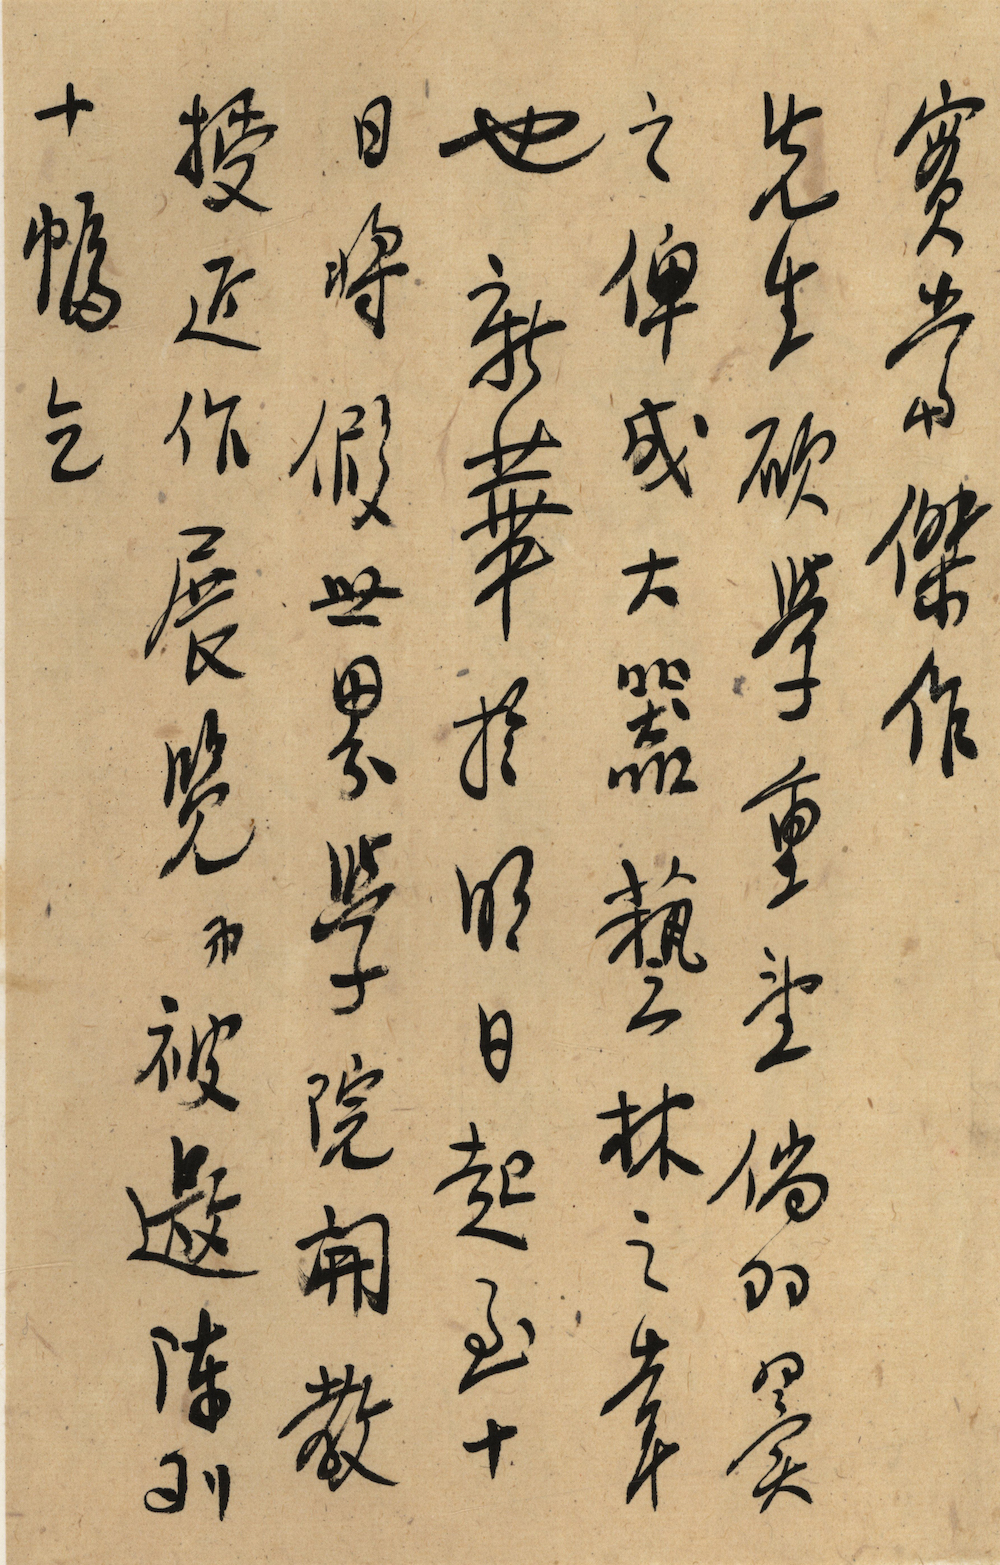 實傑作
先生碩學重望倘羽翼
之俾成大器藝林之幸
也新華於明日起至十
日將假世界學院開教
授近作展覽弟被邀陳列
十幅乞